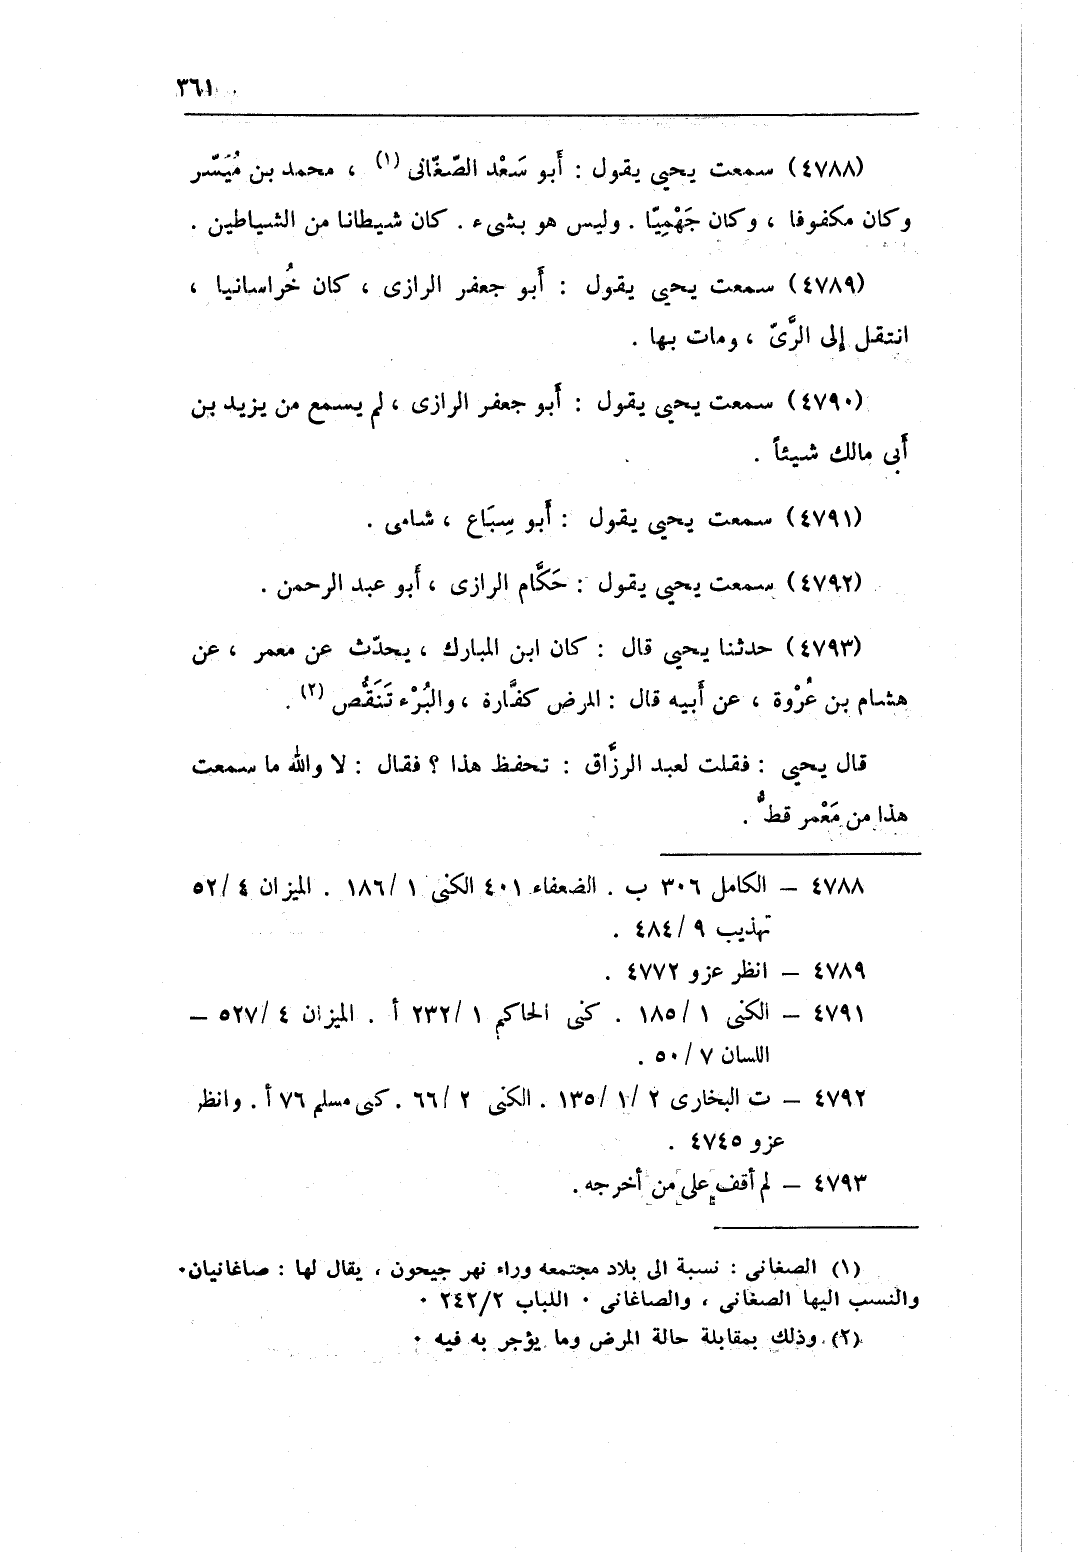 ٣٦١
(٤٧٨٨) سمعت يحيى يقول : أَبو سَعْد الصّغّانى (١) ، محمد بن مُيَسّر
وكان مكفوفا ، وكان جَهْمِيّا . وليس هو بشىء . كان شيطانا من الشياطين .
(٤٧٨٩) سمعت يحيى يقول : أَبو جعفر الرازى ، كان خُراسانيا ،
انتقل إلى الرَّىّ ، ومات بها .
(٤٧٩٠) سمعت يحيى يقول : أَبو جعفر الرازى ، لم يسمع من يزيد بن
أَبى مالك شيئاً .
(٤٧٩١) سمعت يحيى يقول : أَبو سِبَاع ، شامى .
(٤٧٩٢) سمعت يحيى يقول : حَكَّام الرازى ، أَبو عبد الرحمن .
(٤٧٩٣) حدثنا يحيى قال : كان ابن المبارك ، يحدّث عن معمر ، عن
هشام بن عُرْوة ، عن أَبيه قال : المرض كفَّارة ، والبُرْء تَنَقُّص (٢) .
قال يحيى : فقلت لعبد الرزَّاق : تحفظ هذا ؟ فقال : لا والله ما سمعت
هذا من مَعْمر قطُّ .
٤٧٨٨ – الكامل ٣٠٦ ب . الضعفاء ٤٠١ الكنى ١ /١٨٦ . الميزان ٤ /٥٢
تهذيب ٩ /٤٨٤ .
٤٧٨٩ – انظر عزو ٤٧٧٢ .
٤٧٩١ – الكنى ١ /١٨٥ . كنى الحاكم ١ /٢٣٢ أ . الميزان ٤ /٥٢٧ –
اللسان ٧ /٥٠ .
٤٧٩٢ – ت البخارى ٢ /١ /١٣٥ . الكنى ٢ /٦٦ . كنى مسلم ٧٦ أ . وانظر
عزو ٤٧٤٥ .
٤٧٩٣ – لم أقف على من أخرجه .
(١) الصغانى : نسبة الى بلاد مجتمعه وراء نهر جيحون ، يقال لها : صاغانيان٠
والنسب اليها الصغانى ، والصاغانى ٠ اللباب ٢٤٢/٢ ٠
(٢) وذلك بمقابلة حالة المرض وما يؤجر به فيه ٠